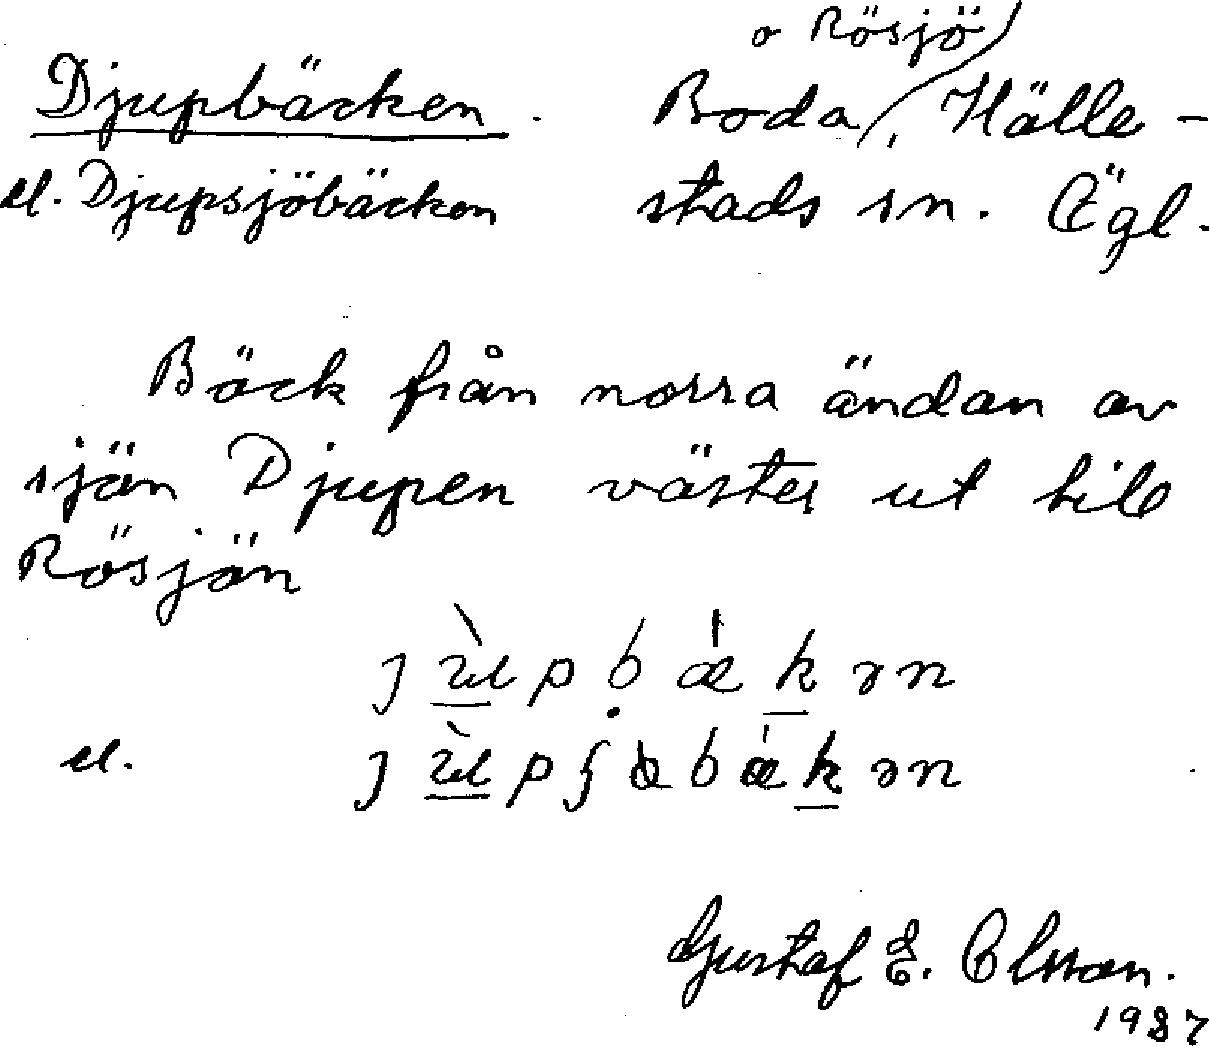 o Rösjö
Djupbäcken. Boda, Hälle-
el. Djupsjöbäcken stads sn. Ögl.
Bäck från norra ändan av
sjön Djupen väster ut till
Rösjön
ȷùpbǽkən
el. ȷùpʃɵbǽkən
Gustaf E. Olsson.
1987